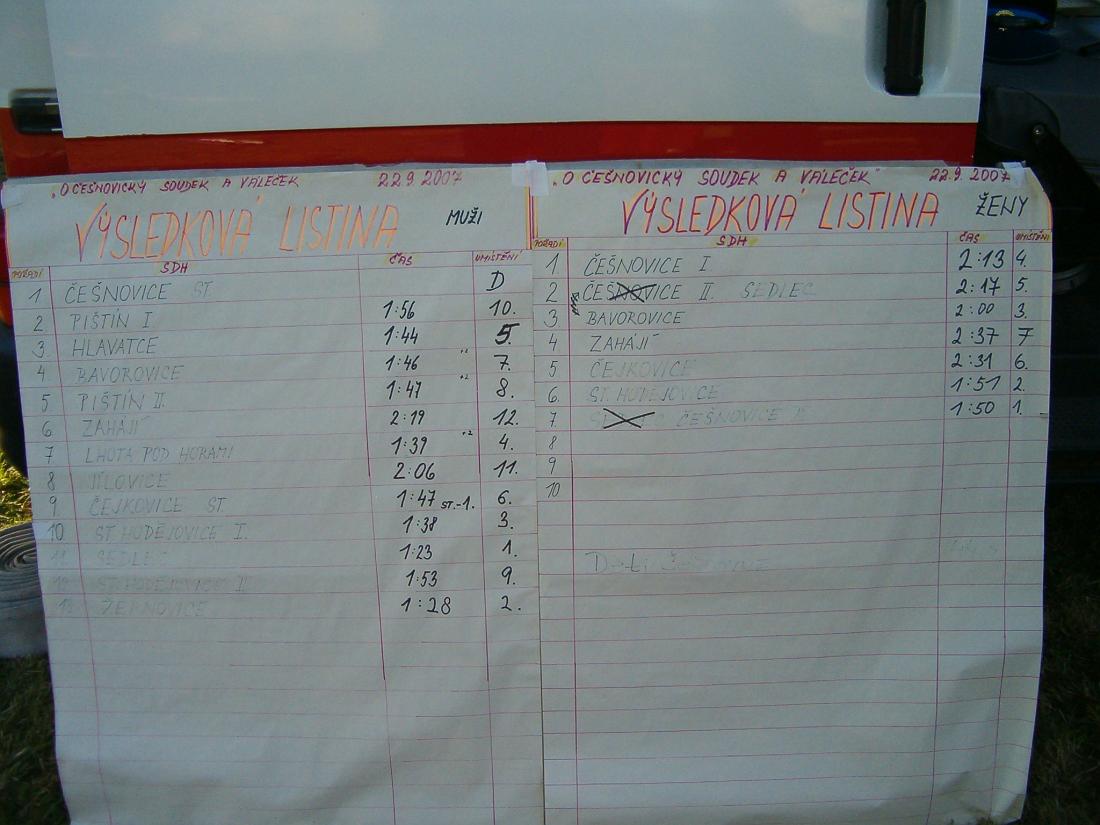 "O ČEŠNOVICKÝ SOUDEK A VÁLEČEK 22.9.2007
VÝSLEDKOVÁ LISTINA MUŽI
POŘADÍ SDH ČAS UMÍSTĚNÍ
1 ČEŠNOVICE ST. D
2 PIŠTÍN I 1:56 10.
3 HLAVATCE 1:44 5.
4 BAVOROVICE 1:46 7.
5 PIŠTÍN II. 1:47 8.
6 ZAHÁJÍ 2:19 12.
7 LHOTA POD HORAMI 1:39 4.
8 JÍLOVICE 2:06 11.
9 ČEJKOVICE ST. 1:47 ST.-1. 6.
10 ST. HODĚJOVICE I. 1:38 3.
11 SEDLEC 1:23 1.
12 ST. HODĚJOVICE II 1:53 9.
13 ŽERNOVICE 1:28 2.
"O ČEŠNOVICKÝ SOUDEK A VÁLEČEK" 22.9.2007
VÝSLEDKOVÁ LISTINA ŽENY
POŘADÍ SDH ČAS UMÍSTĚNÍ
1 ČEŠNOVICE I 2:13 4.
2 ČEŠNOVICE II. SEDLEC 2:17 5.
3 BAVOROVICE 2:00 3.
4 ZAHÁJÍ 2:37 7
5 ČEJKOVICE 2:31 6.
6. ST. HODĚJOVICE 1:51 2.
7. ČEŠNOVICE 1:50 1.
8
9
10